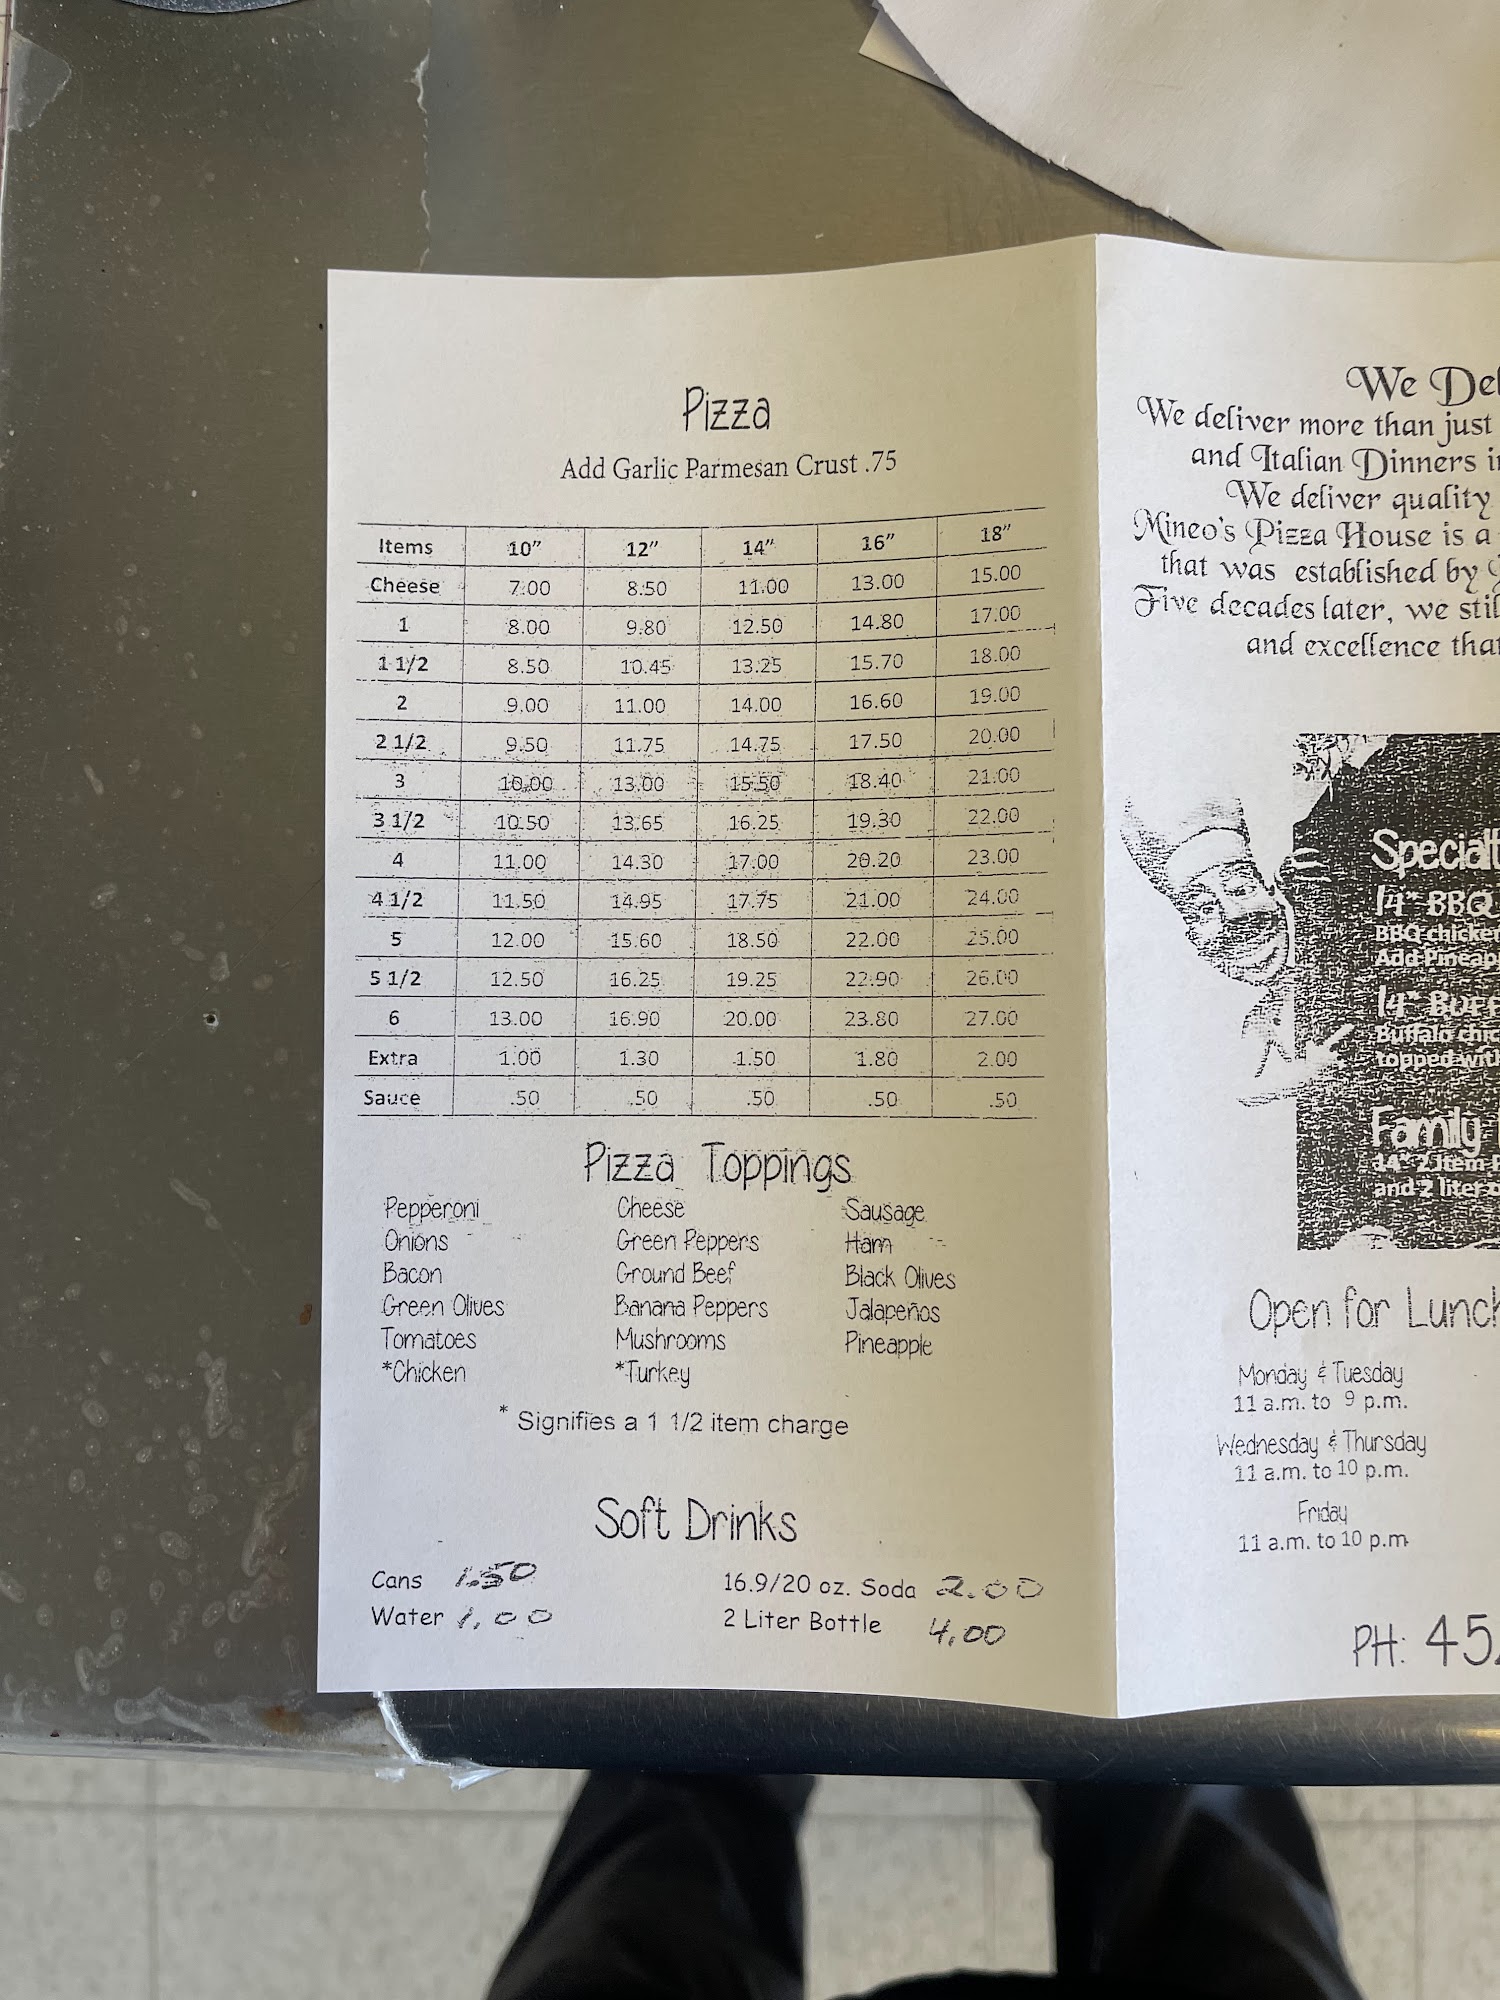 Pizza
Add Garlic Parmesan Crust .75
Items 10″ 12″ 14″ 16″ 18″
Cheese 7.00 8.50 11.00 13.00 15.00
1 8.00 9.80 12.50 14.80 17.00
1 1/2 8.50 10.45 13.25 15.70 18.00
2 9.00 11.00 14.00 16.60 19.00
2 1/2 9.50 11.75 14.75 17.50 20.00
3 10.00 13.00 15.50 18.40 21.00
3 1/2 10.50 13.65 16.25 19.30 22.00
4 11.00 14.30 17.00 20.20 23.00
4 1/2 11.50 14.95 17.75 21.00 24.00
5 12.00 15.60 18.50 22.00 25.00
5 1/2 12.50 16.25 19.25 22.90 26.00
6 13.00 16.90 20.00 23.80 27.00
Extra 1.00 1.30 1.50 1.80 2.00
Sauce .50 .50 .50 .50 .50
Pizza Toppings
Pepperoni Cheese Sausage
Onions Green Peppers Ham
Bacon Ground Beef Black Olives
Green Olives Banana Peppers Jalapeños
Tomatoes Mushrooms Pineapple
*Chicken *Turkey
* Signifies a 1 1/2 item charge
Soft Drinks
Cans 1.50 16.9/20 oz. Soda 2.00
Water 1.00 2 Liter Bottle 4.00
We Del
We deliver more than just
and Italian Dinners i
We deliver quality
Mineo's Pizza House is a
that was established by
Five decades later, we stil
and excellence tha
Specialt
14" BBQ
BBQ chicken
Add Pineap
14" Buff
Buffalo chic
topped with
Family
14" 2 Item
and 2 liter
Open for Lunch
Monday & Tuesday
11 a.m. to 9 p.m.
Wednesday & Thursday
11 a.m. to 10 p.m.
Friday
11 a.m. to 10 p.m
PH: 45